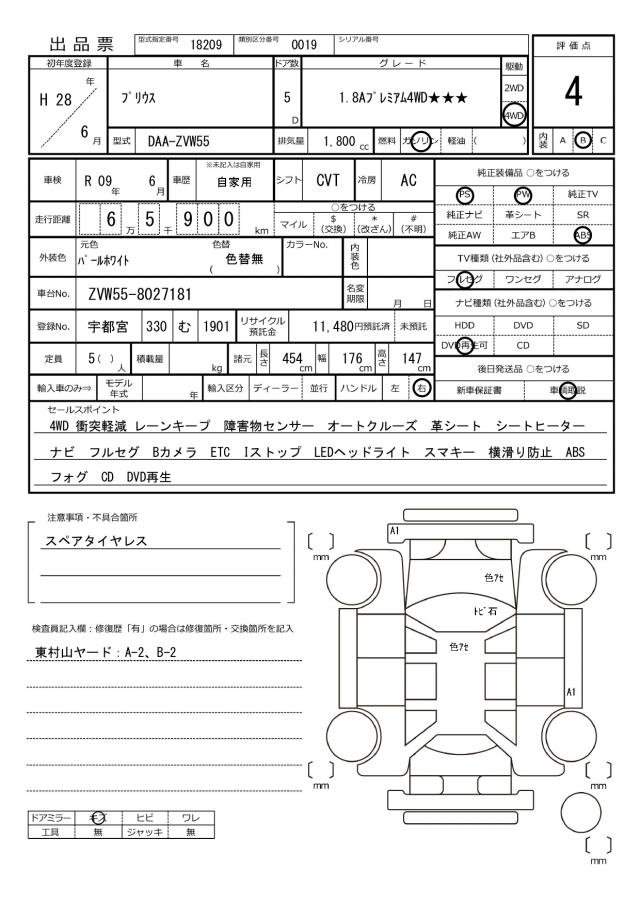 出品票 型式指定番号 18209 類別区分番号 0019 シリアル番号
初年度登録 車名 ドア数 グレード 駆動 評価点
H 28 年 6 月 プリウス 5 D 1.8Aプレミアム4WD★★★ 2WD 4WD 4
型式 DAA-ZVW55 排気量 1,800 cc 燃料 ガソリン 軽油 ( ) 内装 A B C
車検 R 09 年 6 月 車歴 ※未記入は自家用 自家用 シフト CVT 冷房 AC
走行距離 6 万 5 千 9 0 0 km ○をつける
マイル $ (交換) * (改ざん) # (不明)
外装色 元色 パールホワイト 色替 ( 色替無 ) カラーNo. 内装色
車台No. ZVW55-8027181 名変期限 月 日
登録No. 宇都宮 330 む 1901 リサイクル預託金 11,480円預託済 未預託
定員 5 ( ) 人 積載量 kg 諸元 長さ 454 cm 幅 176 cm 高さ 147 cm
輸入車のみ⇒ モデル年式 年 輸入区分 ディーラー 並行 ハンドル 左 右
純正装備品 ○をつける
PS PW 純正TV
純正ナビ 革シート SR
純正AW エアB ABS
TV種類(社外品含む)○をつける
フルセグ ワンセグ アナログ
ナビ種類(社外品含む)○をつける
HDD DVD SD
DVD再生可 CD
後日発送品 ○をつける
新車保証書 車輌取説
セールスポイント
4WD 衝突軽減 レーンキープ 障害物センサー オートクルーズ 革シート シートヒーター
ナビ フルセグ Bカメラ ETC Iストップ LEDヘッドライト スマキー 横滑り防止 ABS
フォグ CD DVD再生
注意事項・不具合箇所
スペアタイヤレス
検査員記入欄:修復歴「有」の場合は修復箇所・交換箇所を記入
東村山ヤード:A-2、B-2
ドアミラー キズ ヒビ ワレ
工具 無 ジャッキ 無
A1
mm
mm
色アセ
トビ石
色アセ
A1
mm
mm
mm